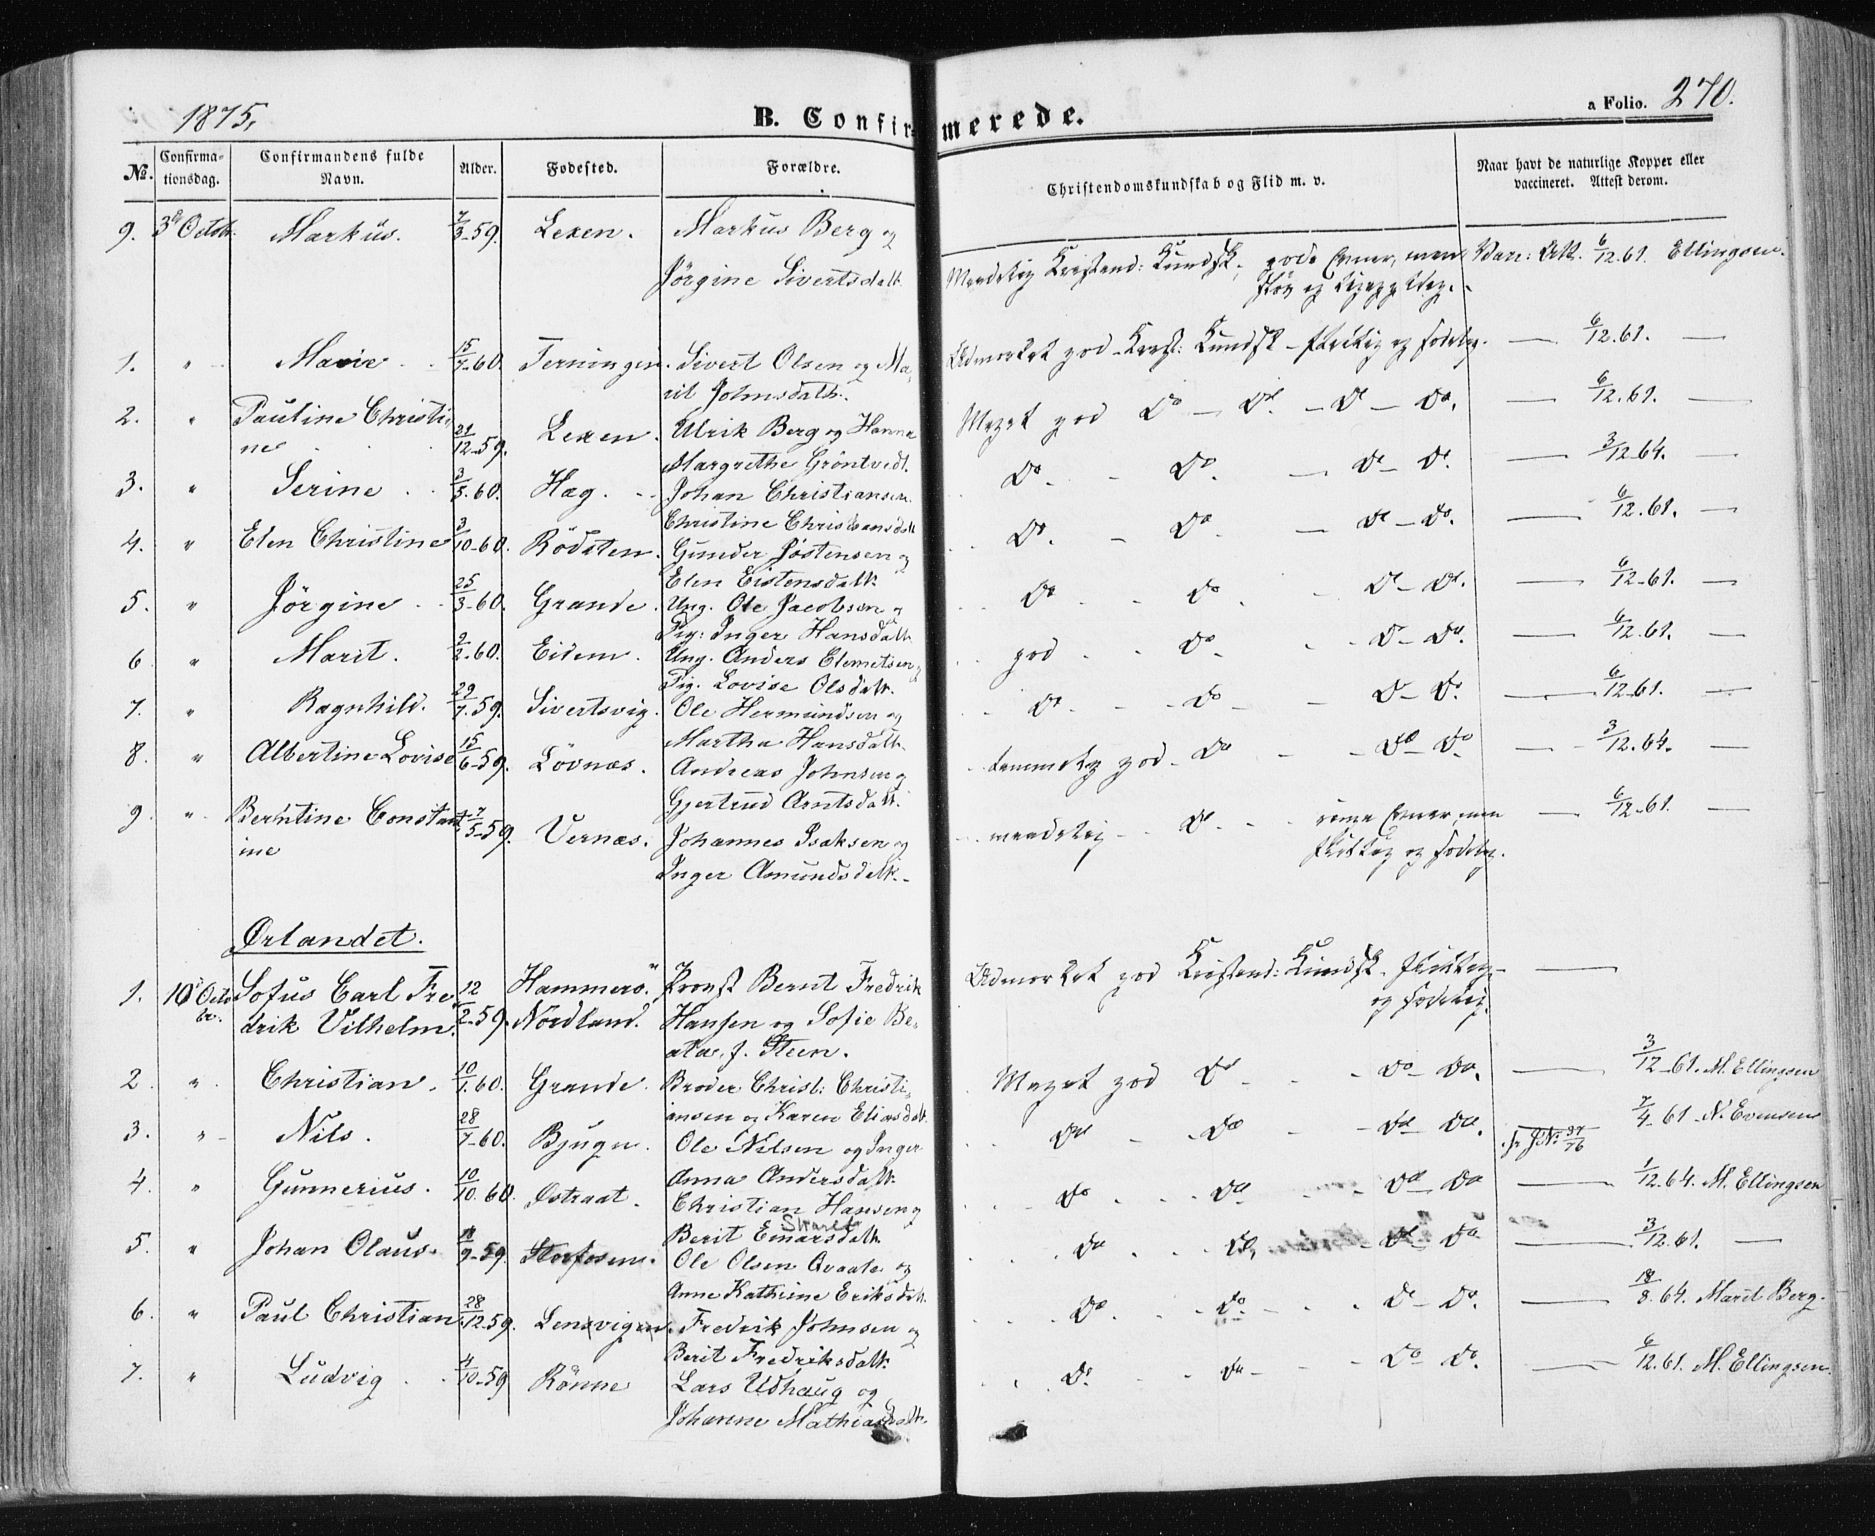 1875,
B. Confirmerede.
a Folio. 270.
No. Confirmationsdag. Confirmandens fulde Navn. Alder. Fødested. Forældre. Christendomskundskab og Flid m. v. Naar havt de naturlige Kopper eller vaccineret. Attest derom.
9. 3d Octobr. Markus. 7/3-59. Lexen. Markus Berg og
Jørgine Sivertsdatt.
Maadelig Kristend: Kundsk., gode Evner, men Vacc: Att. 6/12.61. Ellingsen.
sløv og ligegyldig.
1. " Marie 15/7-60. Terningen. Sivert Olsen og Ma-
rit Johnsdatt.
Udmærket god Krist: Kundsk - flittig og sædelig. — 6/12.61. —
2. " Pauline Christi-
ne 21/12-59. Lexen. Ulrik Berg og Hanna
Margrethe Gröntvedt.
Meget god Do — Do. — Do — Do. — 6/12.61. —
3. " Serine 3/5.60. Hag. Johan Christiansen
Christine Christiansdatt
Do. Do. — Do — Do. — 3/12 64. —
4. " Elen Christine 3/10-60. Rödsten. Gunder Jöstensen og
Elen Eistensdatt.
Do. Do — Do — Do. — 6/12.61. —
5. " Jörgine 25/3-60. Grande. Ung. Ole Jacobsen og
Pig: Inger Hansdatt.
Do Do Do — Do. — 6/12-61. —
6 " Marit. 2/2-60. Eidem. Ung. Anders Elemetsen og
Pig. Lovise Olsdatt.
god Do. Do — Do. — 6/12.61. —
7. " Ragnhild. 29/7.59. Sivertsvig. Ole Hermundsen og
Martha Hansdatt.
Do Do Do — Do. — 6/12-61. —
8. " Albertine Lovise 15/6-59. Lövnæs. Andreas Johnsen og
Gjertrud Arntsdatt.
temmelig god Do Do — Do — 3/12.64. —
9 " Berntine Constant-
ine 7/5-59. Vernæs. Johannes Isaksen og
Inger Amundsdatt.
maadelig Do ringe Evner, men — 6/12-61. —
flittig og sædelig.
Ørlandet.
1. 10d Octobr. Sofus Carl Fre-
drik Vilhelm. 12/2-59. Hammerö. Nordland. Provst Bernt Fredrik
Hansen og Sofie Be-
ata, f. Steen.
Udmærket god Kristend: Kundsk. flittig
og sædelig. —
2. " Christian. 10/1.60. Grande. Broder Christ: Christi-
ansen og Karen Eliasdatt.
Meget god Do Do — Do. — 3/12-61. M. Ellingsen
3. " Nils. 28/7-60. Bjugn. Ole Nilsen og Inger
Anna Andersdatt.
Do Do Do Do. 7/4-61 N. Evensen
4. " Gunnerius. 10/10.60. Østraat. Christian Hansen og
Berit Einarsdatt.
Do Do Do Do — 1/12.64. M. Ellingsen
5. " Johan Olaus. 9-59. Storfosen. Ole Olsen Qvaale og
Anne Kathrine Eriksdatt.
Do Do, Do Do — 3/12.61. —
6. " Paul Christian 28/12.59. Lensvigen. Fredrik Johnsen og
Berit Fredriksdatt.
Do Do Do Do. — 18/8.64. Marit Berg.
7. " Ludvig 4/10-59 Rönne Lars Udhaug og
Johanne Mathiasdatt.
Do. Do Do Do. — 6/12.61. M. Ellingsen.